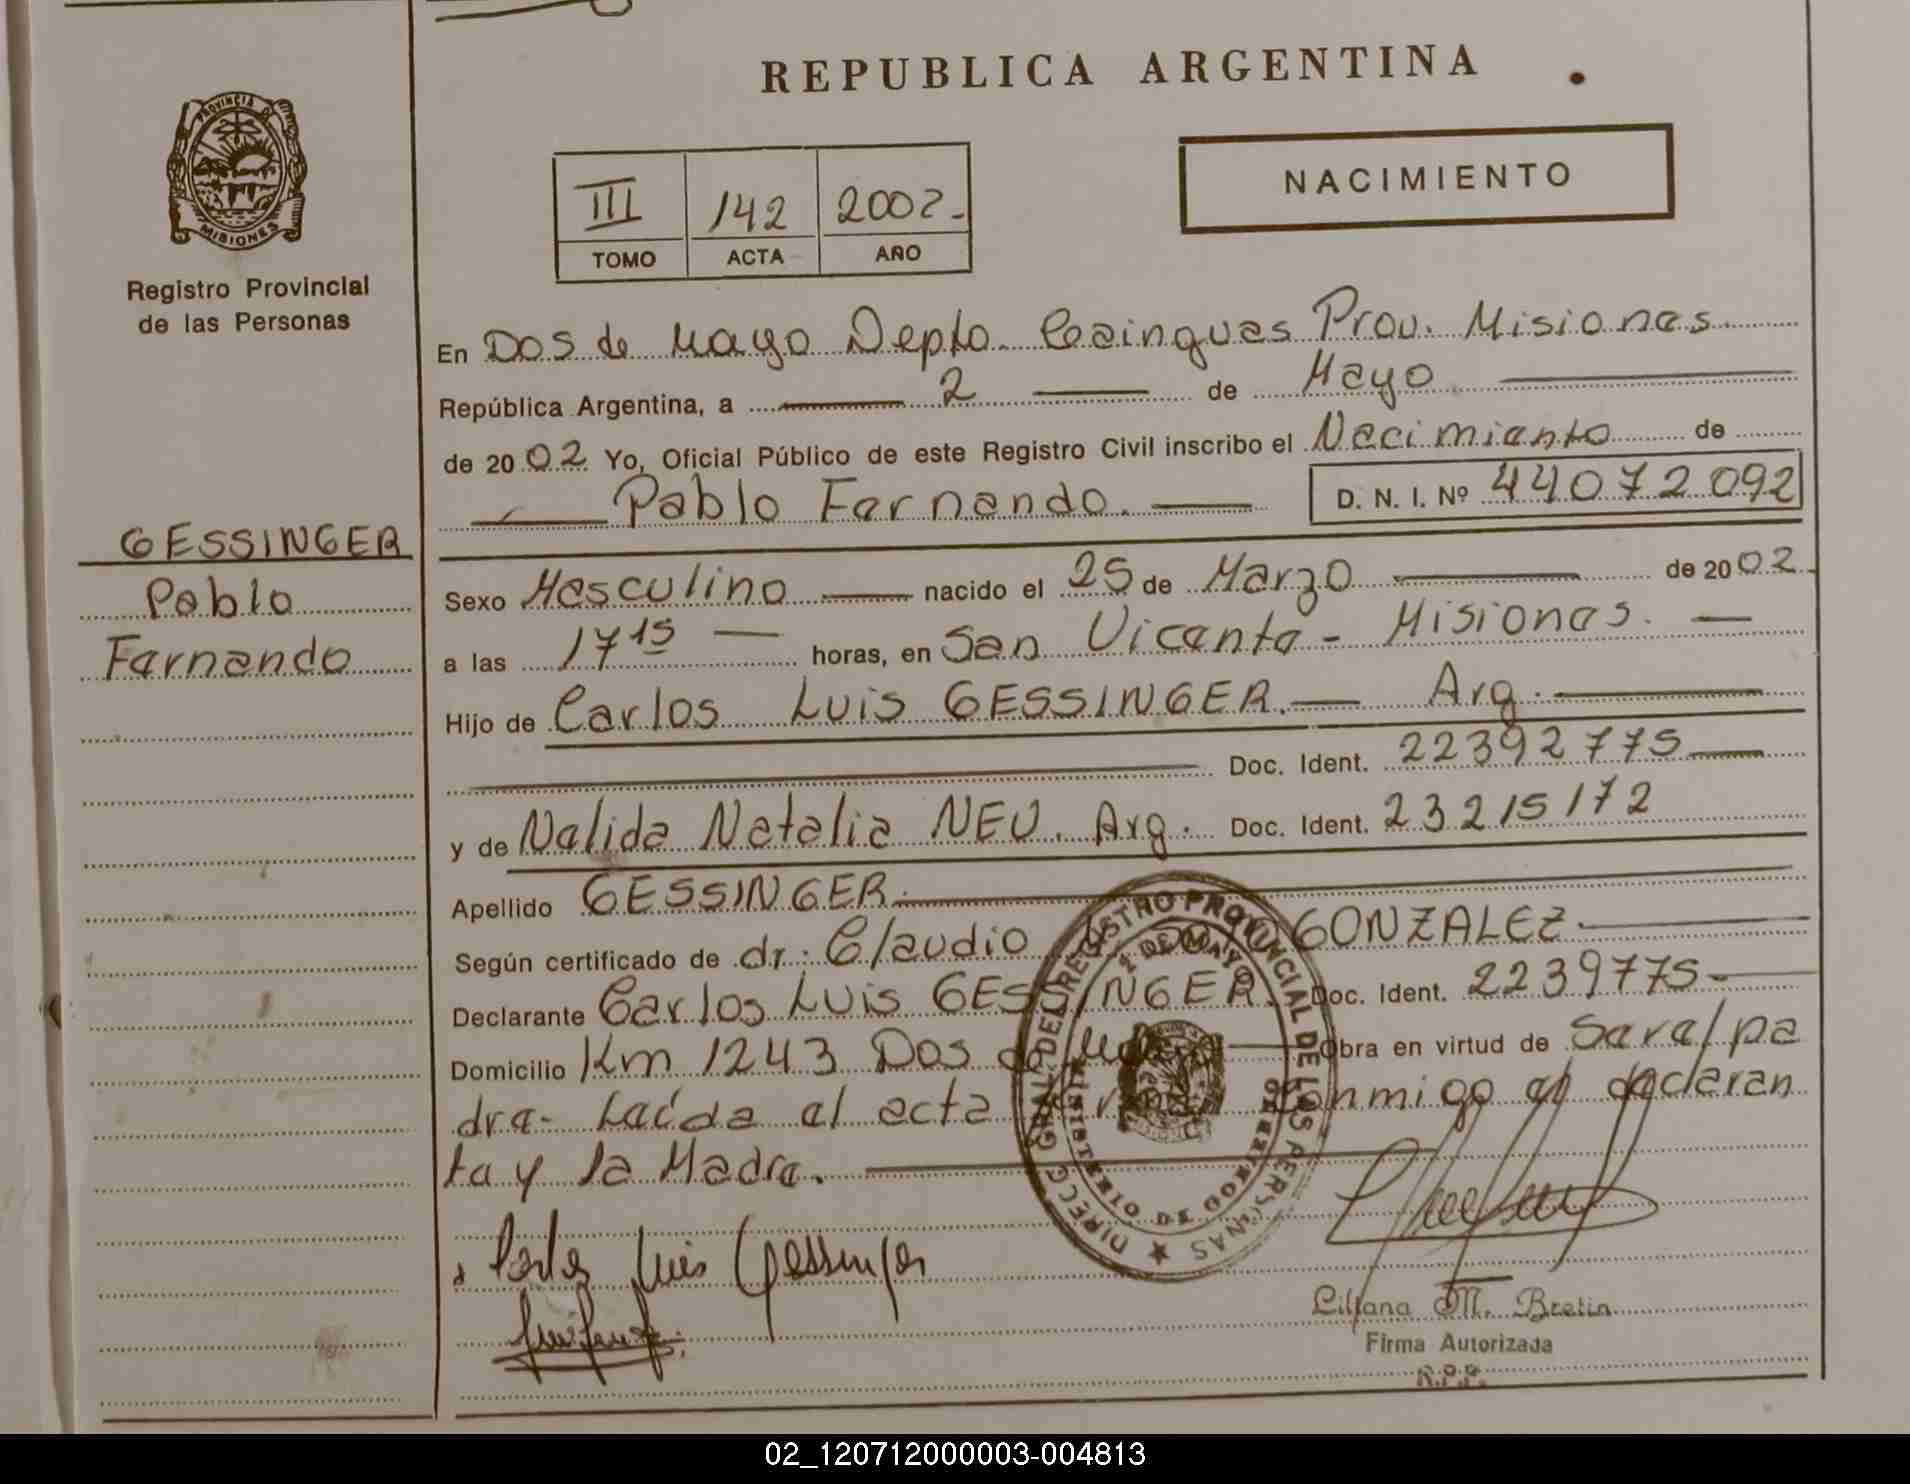 REPUBLICA ARGENTINA
PROVINCIA DE MISIONES
Registro Provincial
de las Personas
III 142 2002-
TOMO ACTA AÑO
NACIMIENTO
En Dos de Mayo Depto. Cainguas Prov. Misiones
República Argentina, a 2 de Mayo
de 2002 Yo, Oficial Público de este Registro Civil inscribo el Nacimiento de
Pablo Fernando. D. N. I. Nº 44072092
GESSINGER
Pablo
Fernando
Sexo Masculino nacido el 25 de Marzo de 2002
a las 17 15 horas, en San Vicente - Misiones.
Hijo de Carlos Luis GESSINGER. Arg.
Doc. Ident. 22392775
y de Nelida Natalia NEU. Arg. Doc. Ident. 23215172
Apellido GESSINGER.
Según certificado de dr. Claudio GONZALEZ
Declarante Carlos Luis GESSINGER. Doc. Ident. 2239775-
Domicilio Km 1243 Dos de Mayo Obra en virtud de Ser el pa
dre- Leída el acta conmigo el declaran
te y la Madre.
DIRECC. GRAL. DEL REGISTRO PROVINCIAL DE LAS PERSONAS
MINISTERIO DE GOBIERNO
2 DE MAYO
Carlos Luis Gessinger
Liliana M. Bretin
Firma Autorizada
R.P.P.
02_120712000003-004813